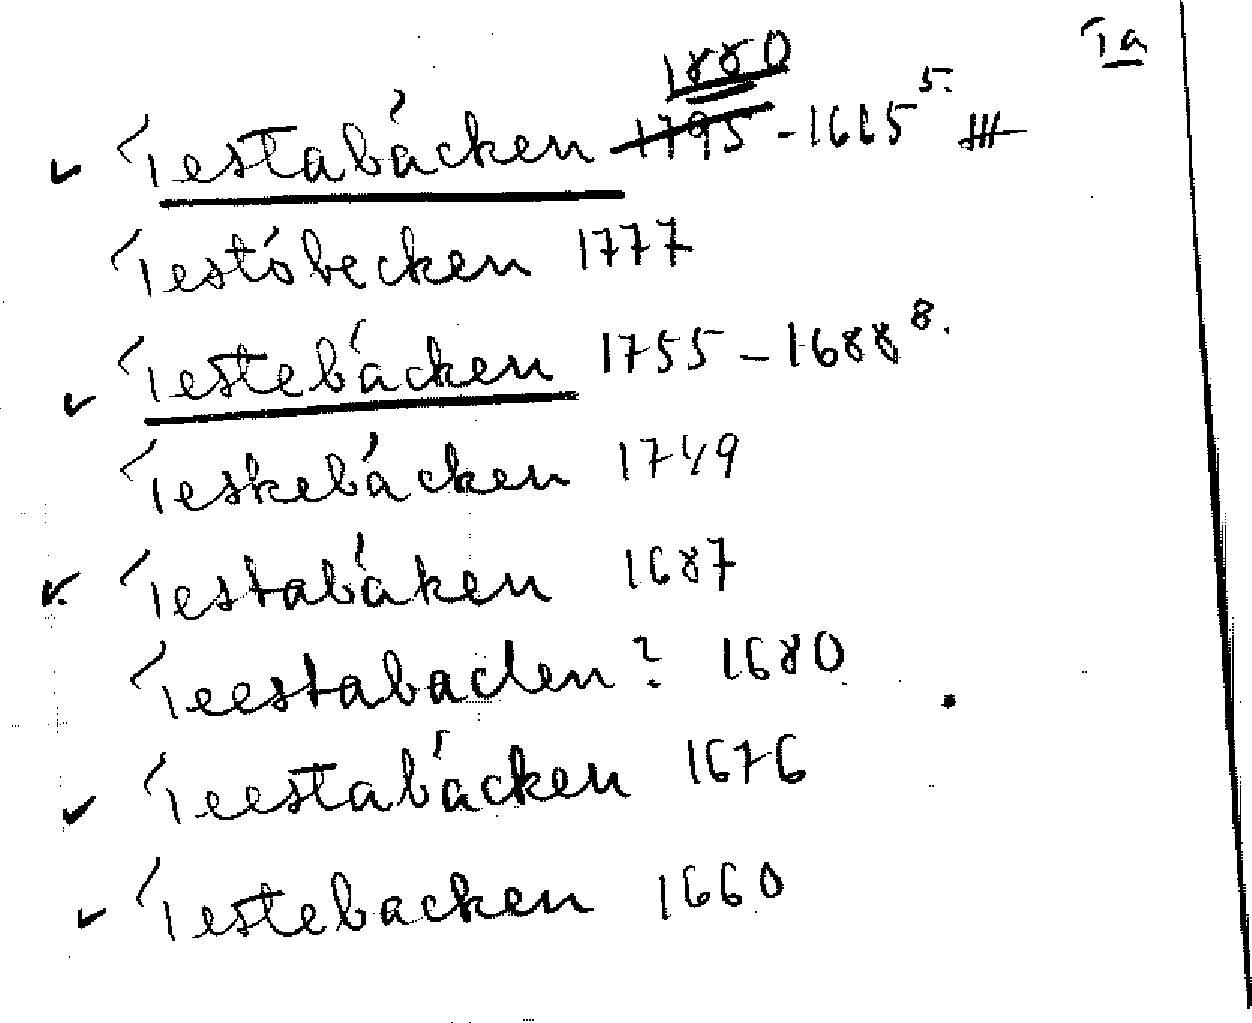 Ta
1880
Testabäcken 1795 - 1665 5.
Testöbecken 1777
Testebäcken 1755 - 1688 8.
Teskebäcken 1749
Testabäken 1687
Teestabaclen? 1680
Teestabäcken 1676
Testebacken 1660